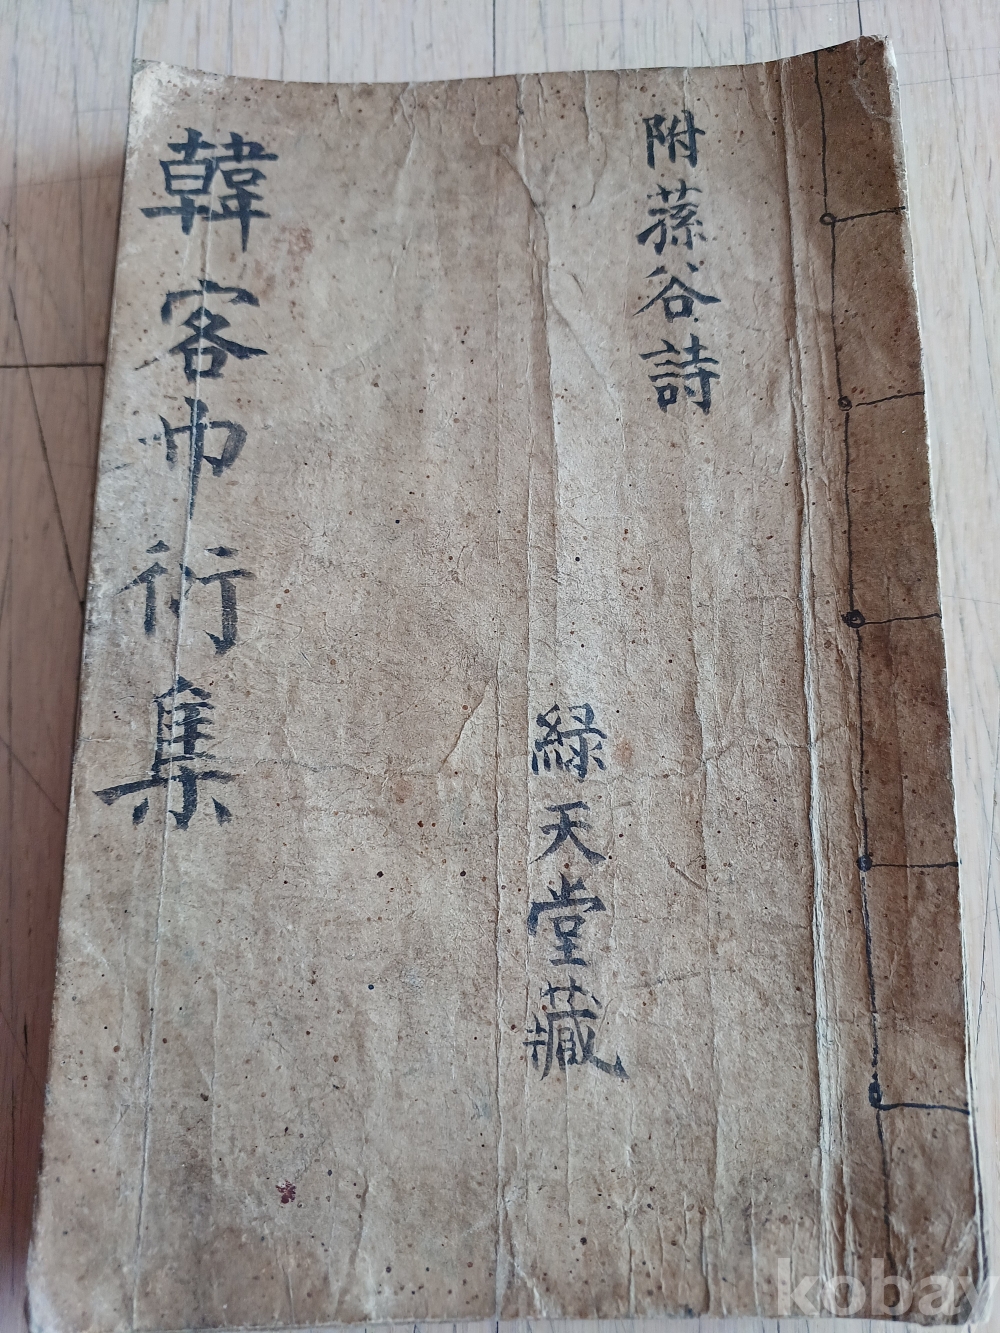 附蓀谷詩
緑天堂藏
韓客巾衍集
kobay